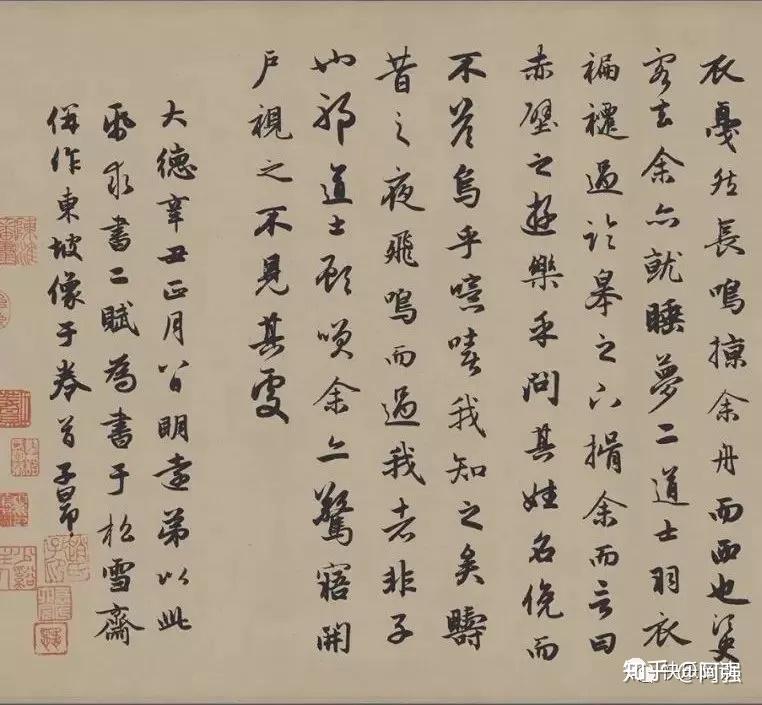 衣戛然長鳴掠余舟而西也須臾
客去余亦就睡夢二道士羽衣
褊褼過臨皋之下揖余而言曰
赤壁之遊樂乎問其姓名俛而
不答烏乎噫嘻我知之矣疇
昔之夜飛鳴而過我者非子
也邪道士顧笑余亦驚寤開
戶視之不見其處
大德辛丑正月八日明遠弟以此
紙求書二賦為書于松雪齋
併作東坡像于卷首子昂
知乎 @阿强